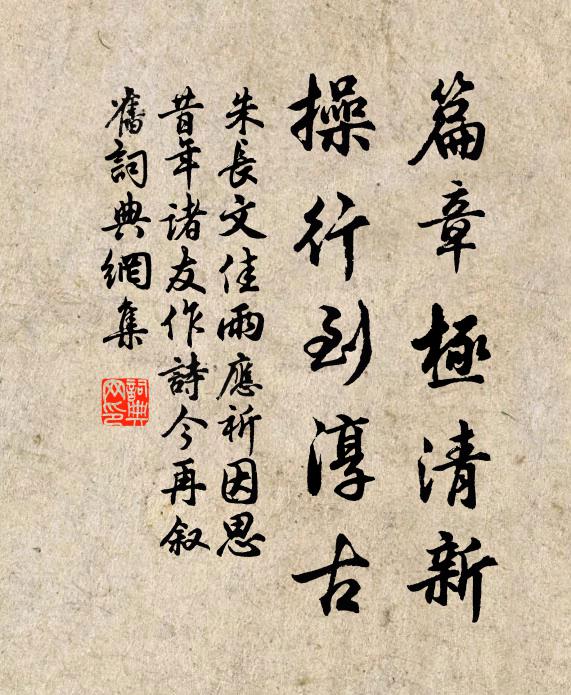 篇章極清新
操行到淳古
朱長文佳雨應祈因思
昔年諸友作詩今再叙
舊詞典網集
詞典
网印